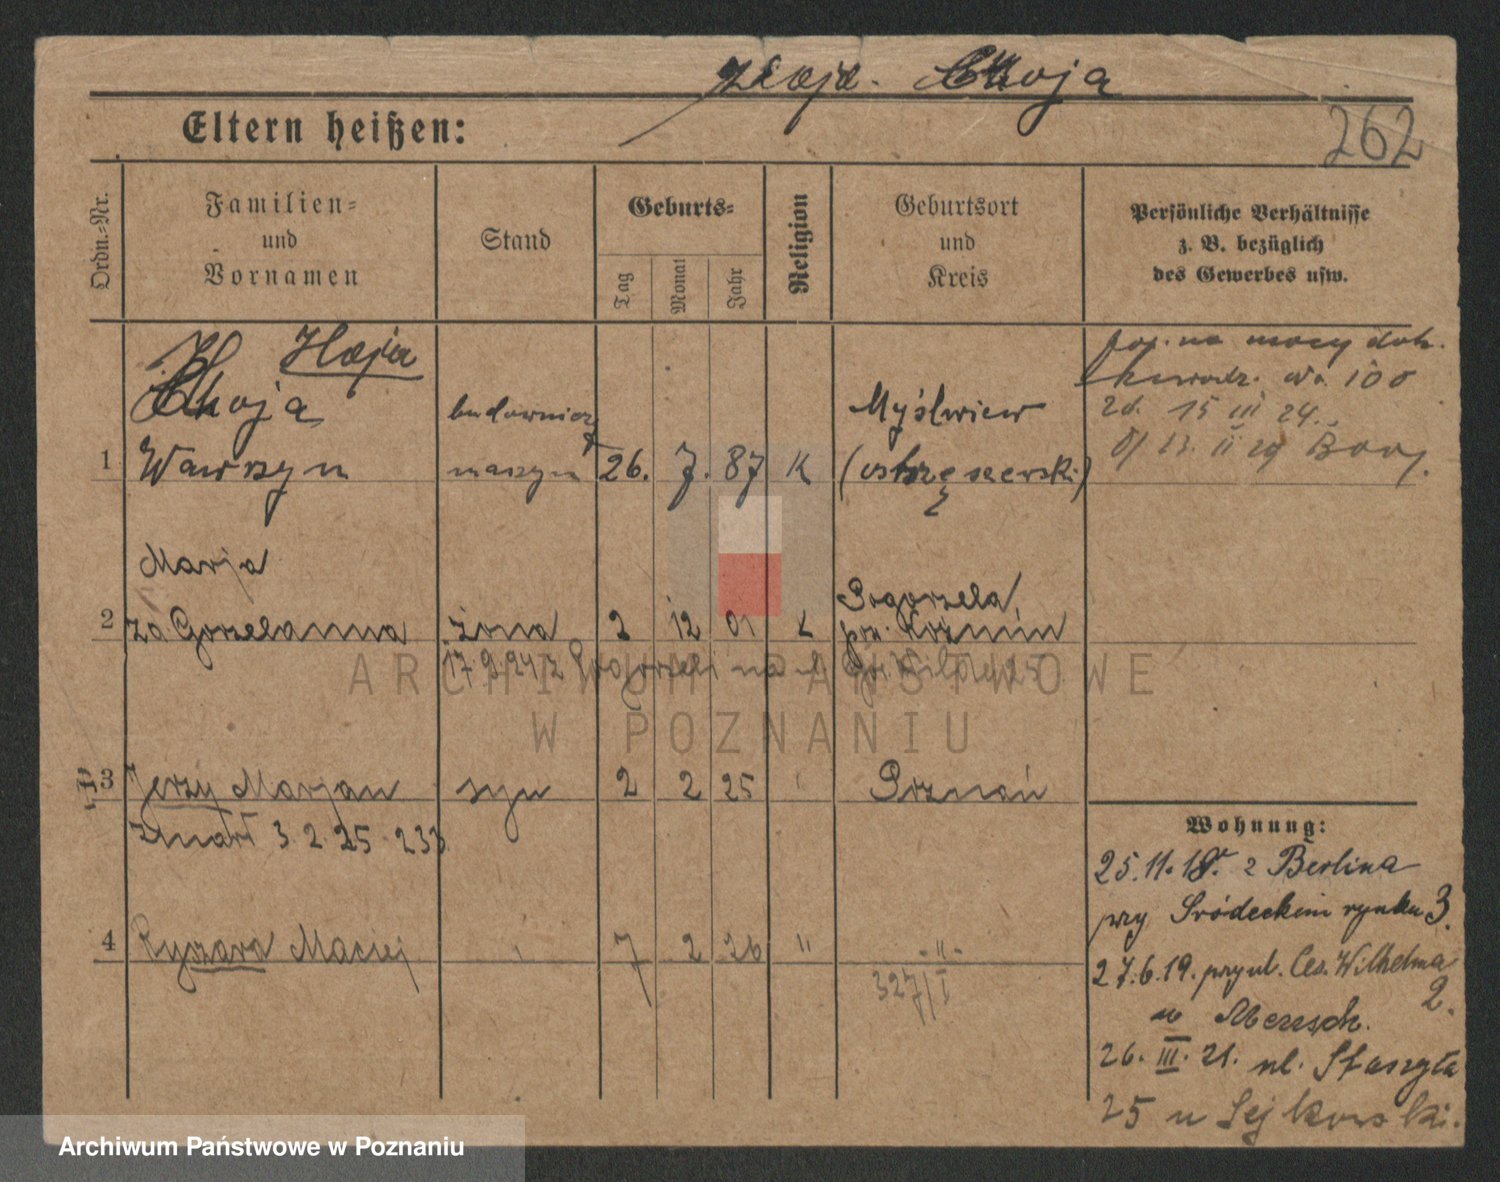 Choja
Eltern heißen:
262
Ordn.-Nr.
Familien-
und
Vornamen
Stand
Geburts-
Tag
Monat
Jahr
Religion
Geburtsort
und
Kreis
Persönliche Verhältnisse
z. B. bezüglich
des Gewerbes usw.
Hoja
Choja
1 Wawrzyn
budowniczy
maszyn
26. 7. 87 K
Myślniew
(ostrzeszewski)
15 III 24.
Marja
2 za Gorzelanna żona 2 12 01 K
Pogorzela,
pow. Koźmin
17 9 24 z Pogorzeli na
3 Jerzy Marjan syn 2 2 25 Poznań
zmarł 3. 2. 25 233
4 Ryszard Maciej 7 2 26 " -"-
327/I
Wohnung:
25.11.18. z Berlina
przy Śródeckim rynku 3.
27.6.19. przy ul. Ces. Wilhelma
2.
u Mensch.
26. III. 21. ul. Staszyca
25 u Sejkowski.
ARCHIWUM PAŃSTWOWE
W POZNANIU
Archiwum Państwowe w Poznaniu